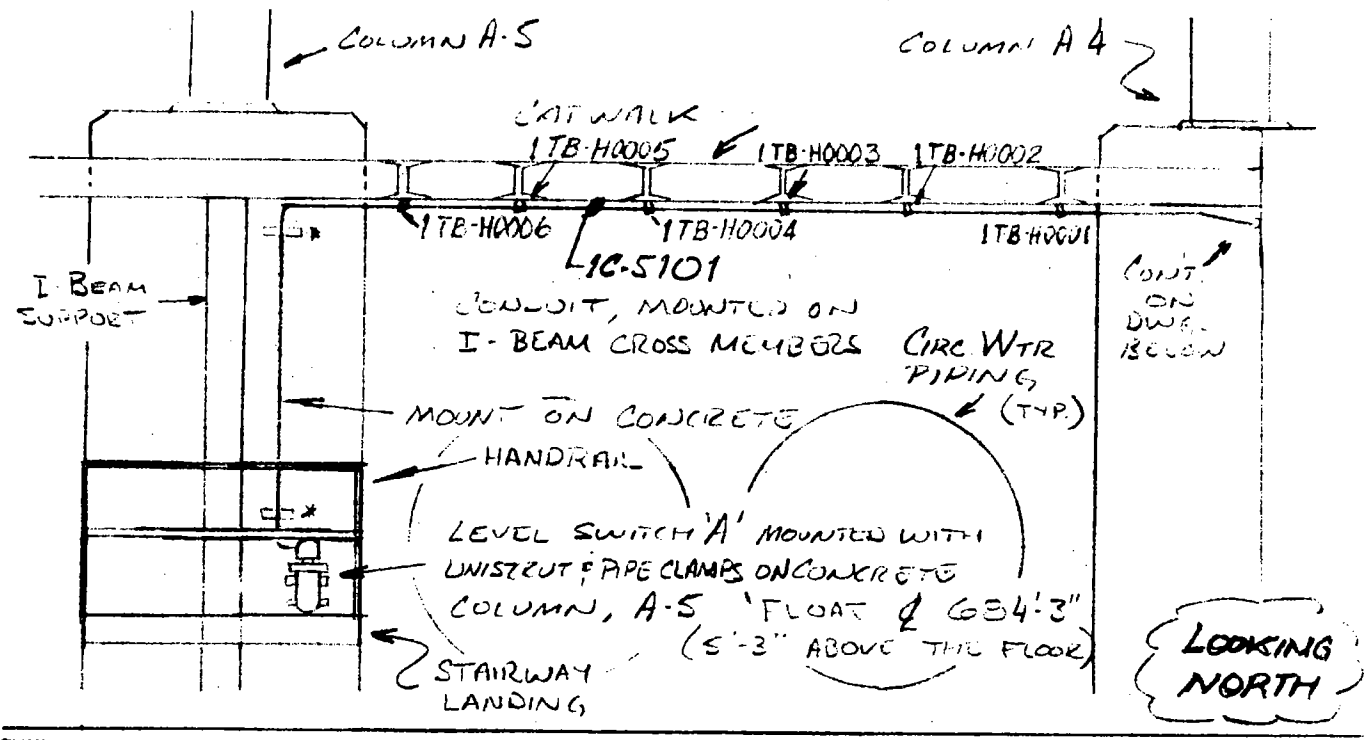 COLUMN A-5
COLUMN A4
CATWALK
1TB-H0005
1TB-H0003
1TB-H0002
1TB-H0006
1TB-H0004
1TB-H0001
1C-5101
CONDUIT, MOUNTED ON
I-BEAM CROSS MEMBERS
I-BEAM
SUPPORT
CONT.
ON
DWG.
BELOW
CIRC WTR
PIPING
(TYP.)
MOUNT ON CONCRETE
HANDRAIL
LEVEL SWITCH 'A' MOUNTED WITH
UNISTRUT & PIPE CLAMPS ON CONCRETE
COLUMN, A-5 'FLOAT ℄ 684'-3"
(5'-3" ABOVE THE FLOOR)
STAIRWAY
LANDING
LOOKING
NORTH